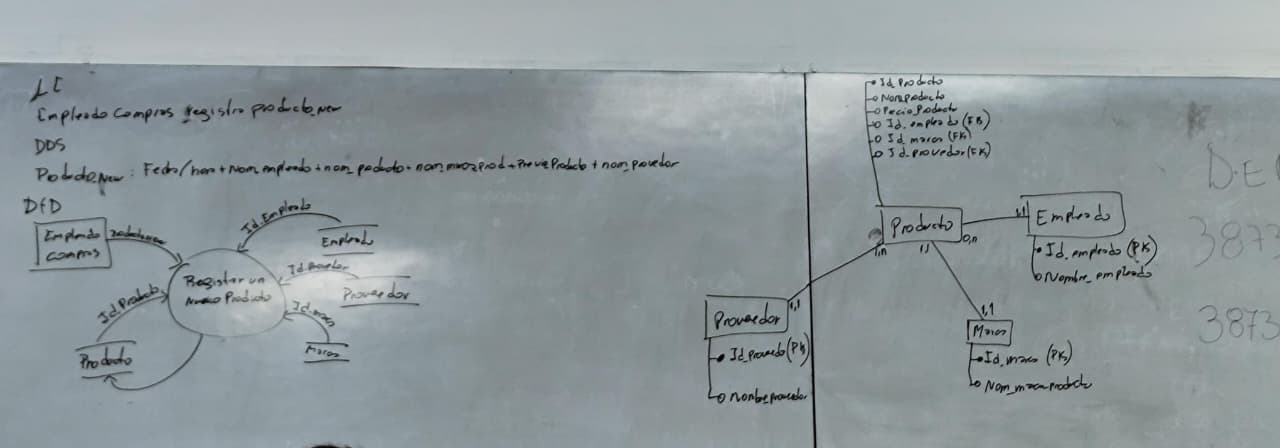 LE
Empleado Compras registra producto_New
DDS
Podcto_New : Fecha/hora+Nom_empleado+nom_podacto+nom_marca_prod+PrecioProducto+nom_provedor
DFD
Empleado
compras
Id_Empleado
Empleado
Id_Provedor
Proveedor
Registrar un
Nuevo Producto
Id_Producto
Id_marca
Producto
Marca
Id_Producto
Nom_producto
Pecio_Producto
Id_empleado (FB)
Id_marca (FK)
Id_provedor (FK)
Producto
1,n
1,1
0,n
1,1
Empleado
Id_empleado (PK)
Nombre_empleado
1,1
Proveedor
Id_provedo (PK)
nombre_proveedor
1,1
Marca
Id_marca (PK)
Nom_marca_producto
D.E
3873
3873